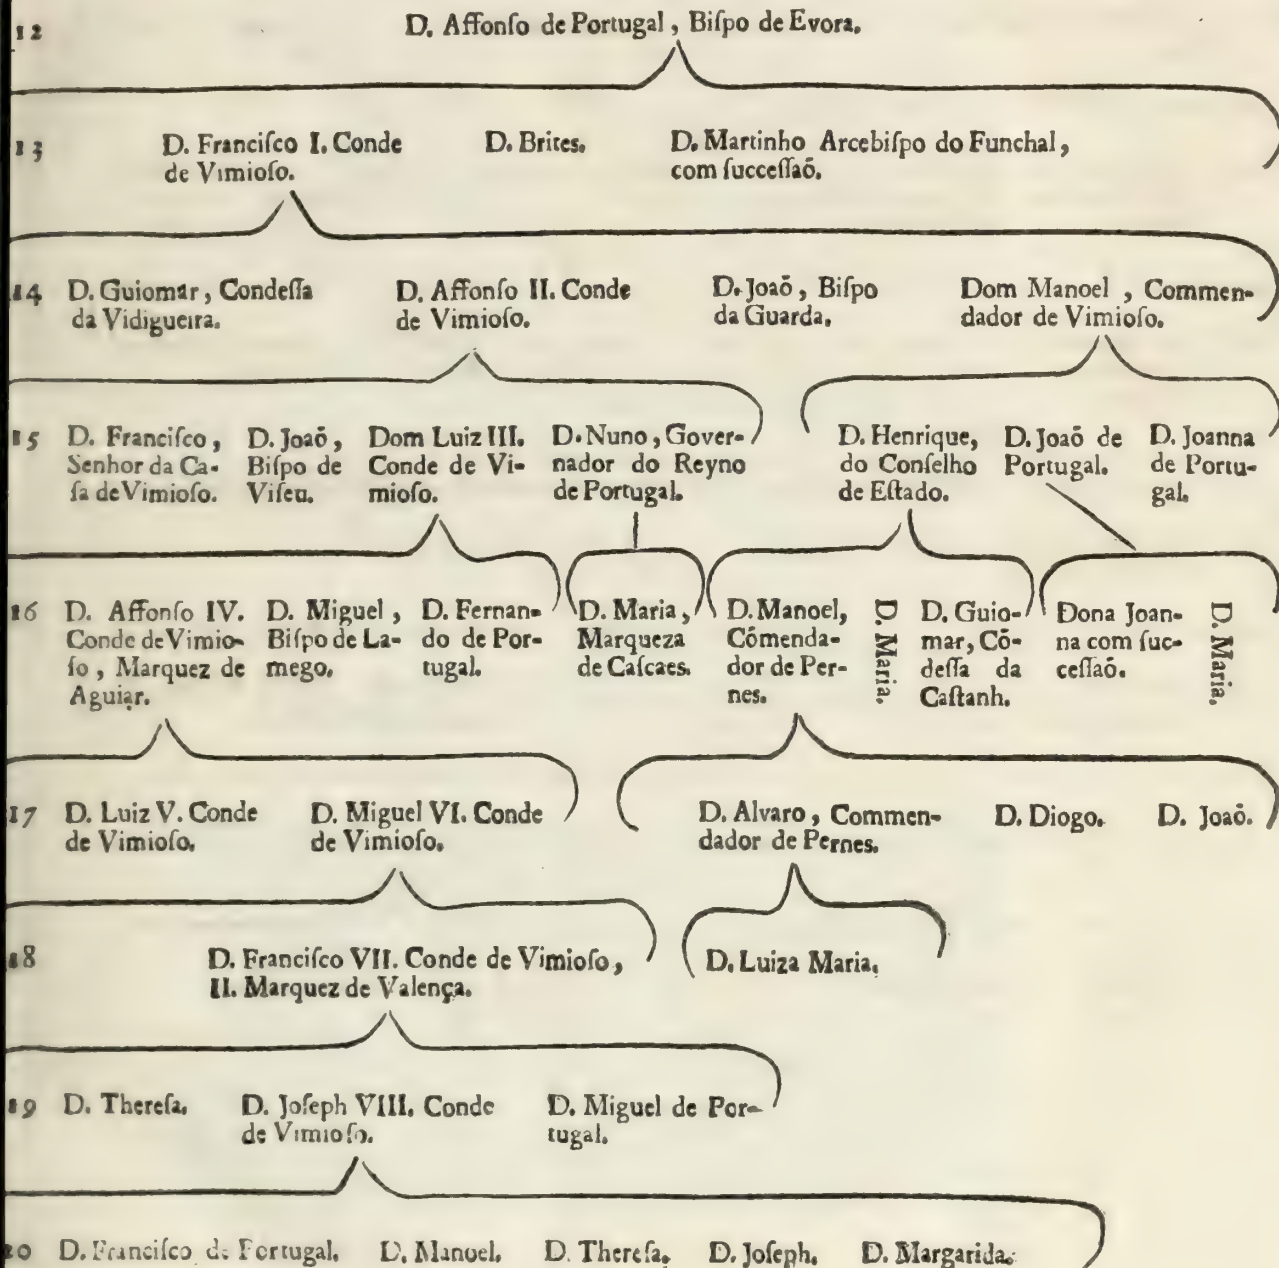 12 D. Affonſo de Portugal, Biſpo de Evora.
13 D. Franciſco I. Conde
de Vimioſo.
D. Brites.
D. Martinho Arcebiſpo do Funchal,
com ſucceſſaõ.
14 D. Guiomar, Condeſſa
da Vidigueira.
D. Affonſo II. Conde
de Vimioſo.
D. Joaõ, Biſpo
da Guarda.
Dom Manoel, Commen-
dador de Vimioſo.
15 D. Franciſco,
Senhor da Ca-
ſa de Vimioſo.
D. Joaõ,
Biſpo de
Viſeu.
Dom Luiz III.
Conde de Vi-
mioſo.
D. Nuno, Gover-
nador do Reyno
de Portugal.
D. Henrique,
do Conſelho
de Eſtado.
D. Joaõ de
Portugal.
D. Joanna
de Portu-
gal.
16 D. Affonſo IV.
Conde de Vimio-
ſo, Marquez de
Aguiar.
D. Miguel,
Biſpo de La-
mego.
D. Fernan-
do de Por-
tugal.
D. Maria,
Marqueza
de Caſcaes.
D. Manoel,
Cõmenda-
dor de Per-
nes.
D. Maria.
D. Guio-
mar, Cõ-
deſſa da
Caſtanh.
Dona Joan-
na com ſuc-
ceſſaõ.
D. Maria.
17 D. Luiz V. Conde
de Vimioſo.
D. Miguel VI. Conde
de Vimioſo.
D. Alvaro, Commen-
dador de Pernes.
D. Diogo.
D. Joaõ.
18 D. Franciſco VII. Conde de Vimioſo,
II. Marquez de Valença.
D. Luiza Maria.
19 D. Thereſa.
D. Joſeph VIII. Conde
de Vimioſo.
D. Miguel de Por-
tugal.
20 D. Franciſco de Portugal. D. Manoel. D. Thereſa. D. Joſeph. D. Margarida.